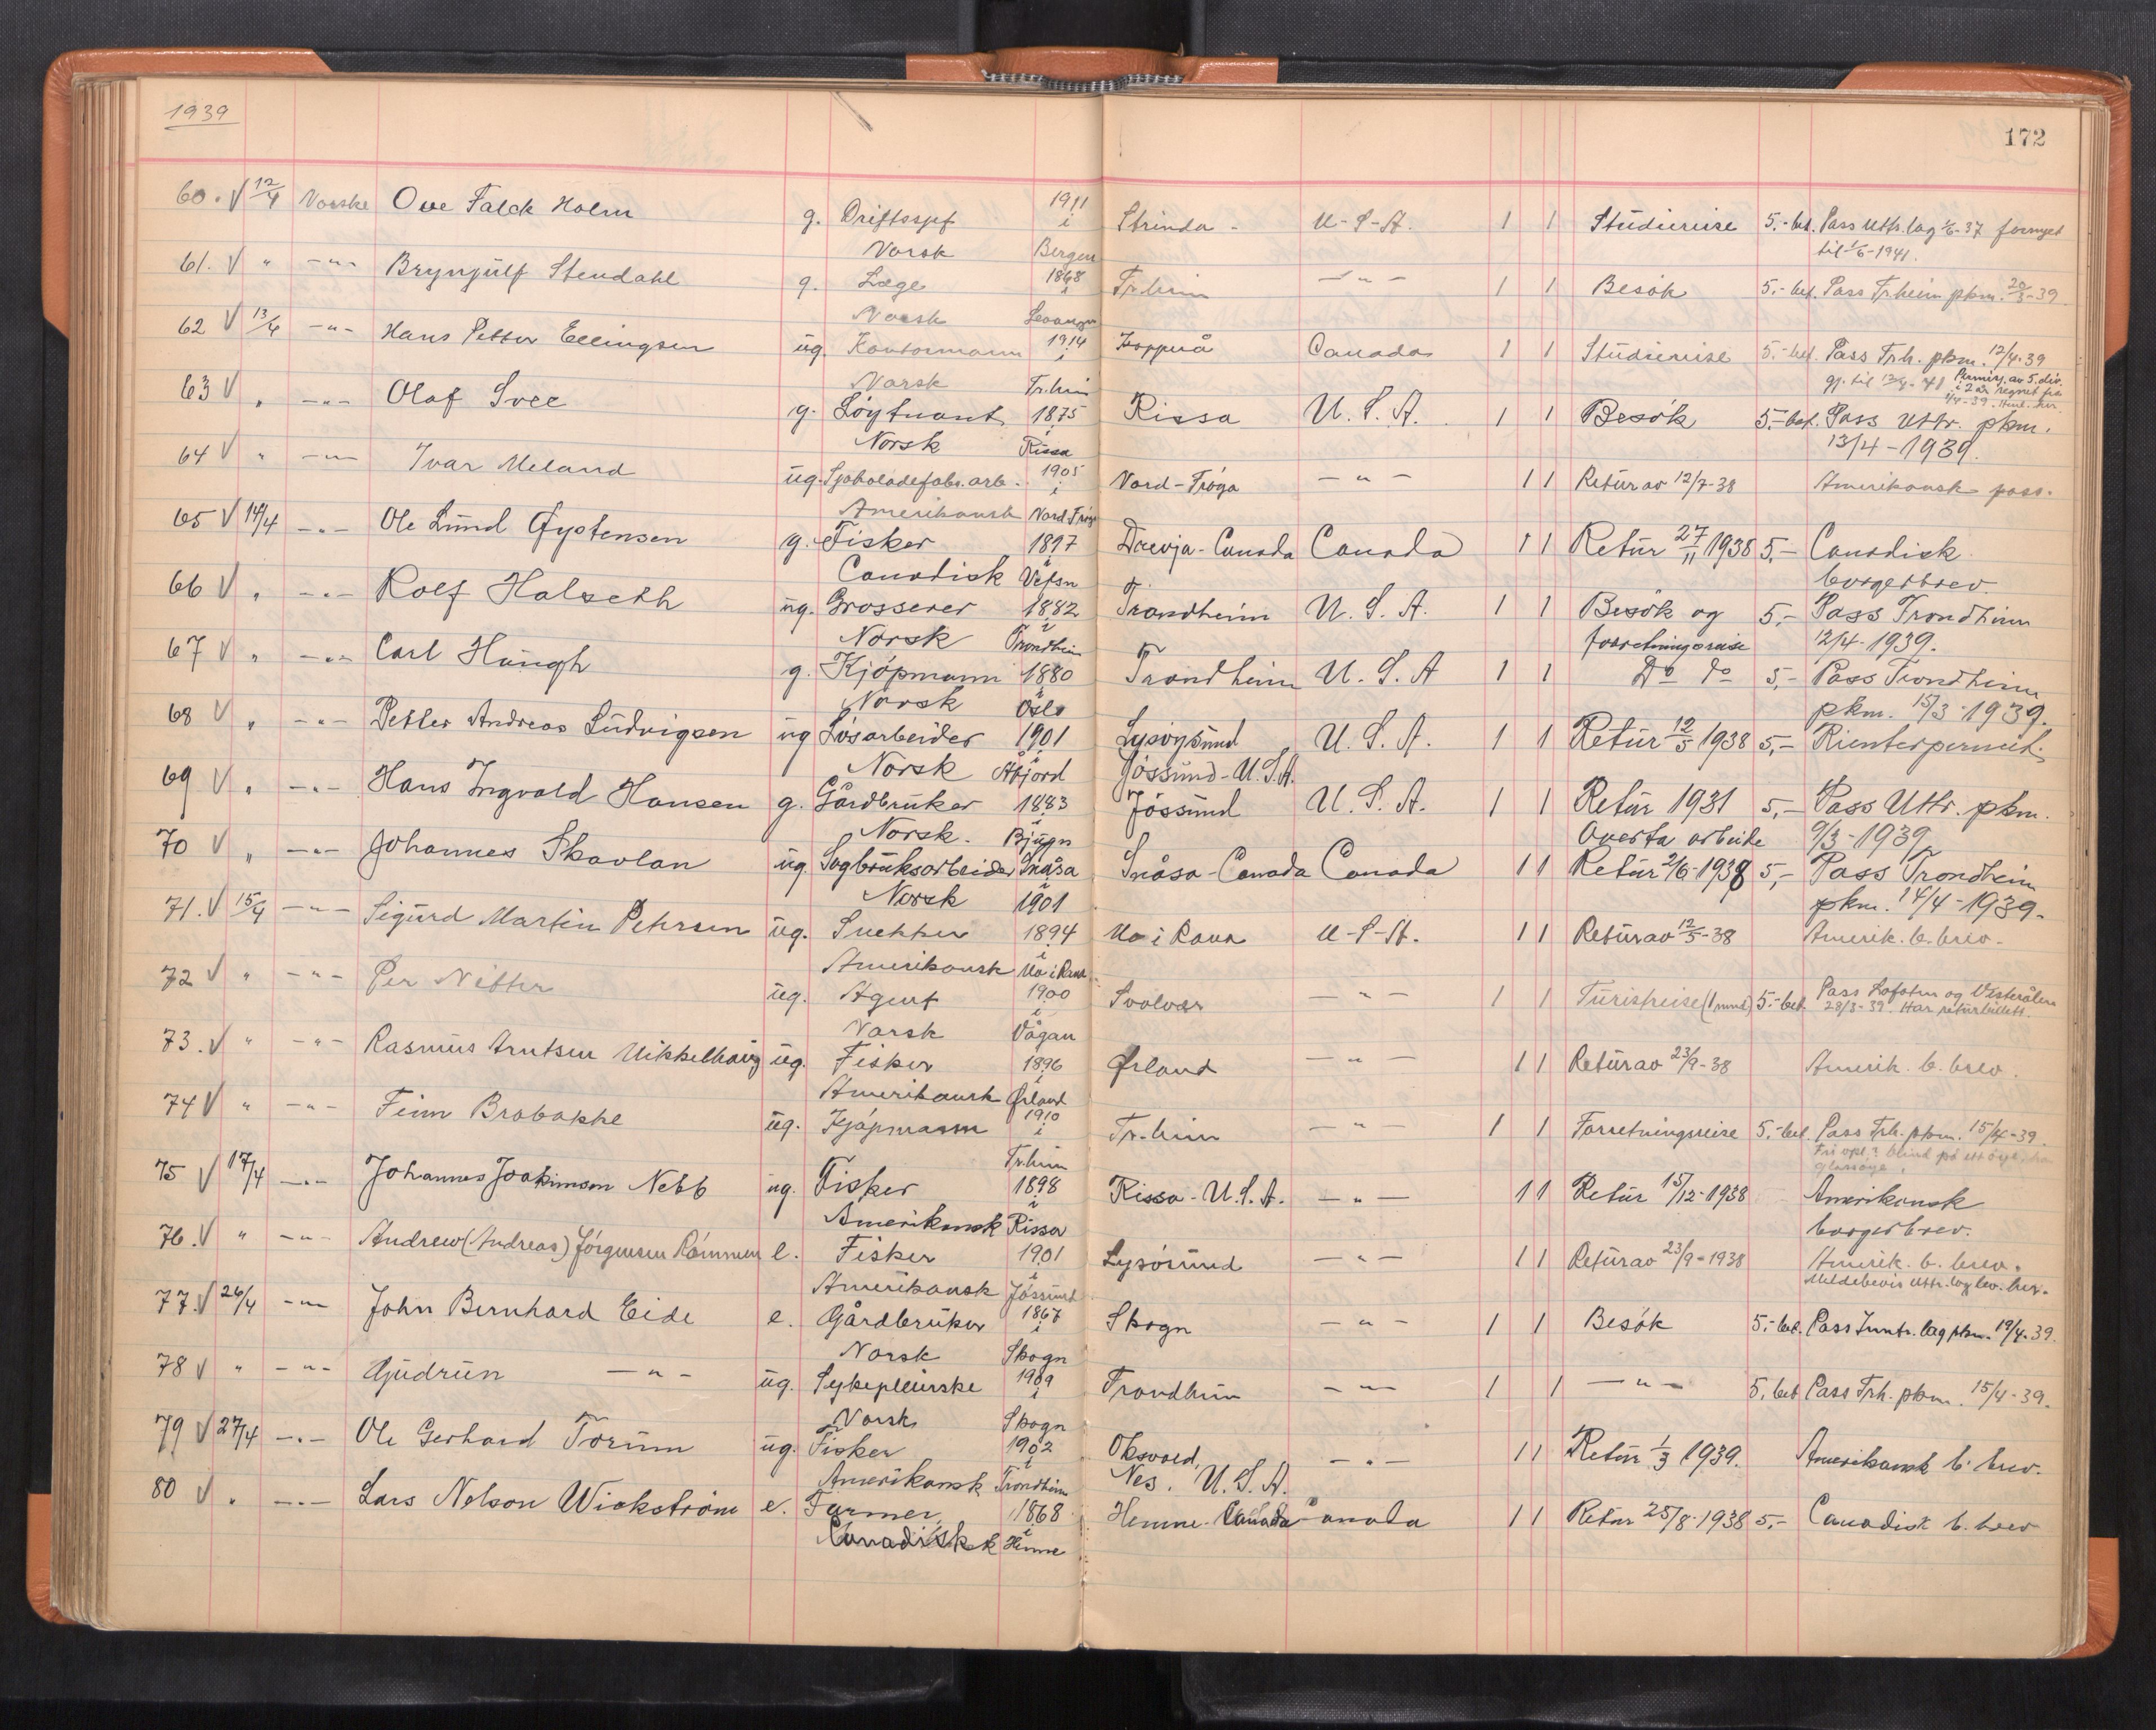 1939
172
60. V 12/4 Norske Ove Falck Holm g. Driftssjef 1911 i Strinda - U-S-A. 1 1 Studiereise 5.- bet. Pass Uttr. lag 1/6-37 fornyet
Norsk Bergen til 1/6-1941.
61. V " -"- Brynjulf Stendahl g. Læge 1868 i Tr.heim -"- 1 1 Besøk 5.- bet. Pass Tr.heim pkm. 20/3-39
Norsk Levanger
62 V 13/4 -"- Hans Petter Ellingsen ug. Kontormann 1914 i Hoppnå Canada 1 1 Studiereise 5.- bet. Pass Trh. pkm. 12/4-39
Norsk Tr.heim gj. til 12/4-41 Permisj. av 5. div. i 2 år regnet fra
63 V " -"- Olaf Svee g. Løytnant 1875 i Rissa U.S.A. 1 1 Besøk 5.- bet. Pass Uttr. pkm.
Norsk Rissa 13/4-1939.
64 V " -"- Ivar Meland ug. Sjokoladefabr.arb. 1905 i Nord-Frøya -"- 1 1 Retur av 12/7-38 Amerikansk pass.
Amerikansk Nord Frøya
65 V 14/4 -"- Ole Lund Øystensen g. Fisker 1897 i Drevja-Canada Canada 1 1 Retur 27/11 1938 5,- Canadisk
Canadisk Vefsn borgerbrev.
66 V " -"- Rolf Halseth ug. Grosserer 1882 i Trondheim U.S.A. 1 1 Besøk og 5,- Pass Trondheim
Norsk Trondheim forretningsreise 12/4-1939.
67 V " -"- Carl Haugh g. Kjøpmann 1880 i Trondheim U.S.A 1 1 Do do 5,- Pass Trondheim
Norsk Oslo pkm. 15/3-1939.
68 V " -"- Petter Andreas Ludvigsen ug Løsarbeider 1901 i Lysøysund U.S.A. 1 1 Retur 12/5 1938 5,- Rienterpermit.
Norsk Åfjord Jøssund-U.S.A.
69 V " -"- Hans Ingvald Hansen g. Gårdbruker 1883 i Jøssund U.S.A. 1 1 Retur 1931 5,- Pass Uttr. pkm.
Norsk. Bjugn Overta arbeide 9/3-1939
70 V " -"- Johannes Skavlan ug. Sagbruksarbeider Snåsa i Snåsa-Canada Canada 1 1 Retur 2/6-1938 5,- Pass Trondheim
Norsk 1901 pkm. 14/4-1939.
71. V 15/4 -"- Sigurd Martin Petersen ug. Snekker 1894 i Mo i Rana U-S-A. 1 1 Retur av 12/5-38 Amerik. b. brev.
Amerikansk Mo i Rana
72 V " -"- Per Nitter ug. Agent 1900 i Svolvær -"- 1 1 Turistreise (1 mnd) 5.- bet. Pass Lofoten og Vesterålen
Norsk Vågan 28/3-39. Har returbillett.
73. V " -"- Rasmus Arntsen Mikkelhaug ug. Fisker 1896 i Ørland -"- 1 1 Retur av 23/9-38 Amerik. b. brev.
Amerikansk Ørland
74 V " -"- Finn Brobakke ug. Kjøpmann 1910 i Tr.heim -"- 1 1 Forretningsreise 5.- bet. Pass Trh. pkm. 15/4-39.
Tr.heim blind på ett øye, har glassøye.
75 V 17/4 -"- Johannes Joakimson Nebb ug. Fisker 1898 i Rissa-U.S.A. -"- 1 1 Retur 15/12-1938 Amerikansk
Amerikansk Rissa borgerbrev.
76. V " -"- Andrew (Andreas) Jørgensen Rømmen e. Fisker 1901 i Lysøsund -"- 1 1 Retur av 23/9-1938 Amerik. b. brev.
Amerikansk Jøssund Meldebevis Uttr. lag lev. her.
77. V 26/4 -"- John Bernhard Eide e. Gårdbruker 1867 i Skogn -"- 1 1 Besøk 5.- bet. Pass Inntr. lag pkm. 19/4-39.
Norsk Skogn
78 V " -"- Gudrun -"- ug. Sykepleierske 1909 i Trondheim -"- 1 1 -"- 5. bet Pass Trh. pkm. 15/4-39.
Norsk Skogn
79 V 27/4 -"- Ole Gerhard Torum ug. Fisker 1902 i Oksvold, -"- 1 1 Retur 1/3 1939. Amerikansk b. brev.
Amerikansk Trondheim Nes. U.S.A.
80 V " -"- Lars Nelson Wickstrøm e. Farmer 1868 i Hemne-Canada Canada 1 1 Retur 25/8-1938 5,- Canadisk b. brev
Canadisk Hemne